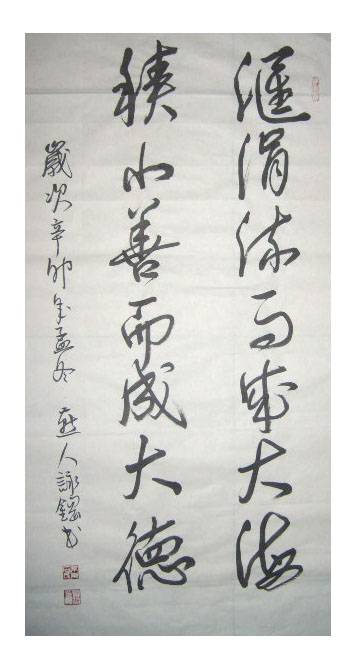 滙涓流而成大海
積小善而成大德
歲次辛卯年孟冬 燕人詠鐸书